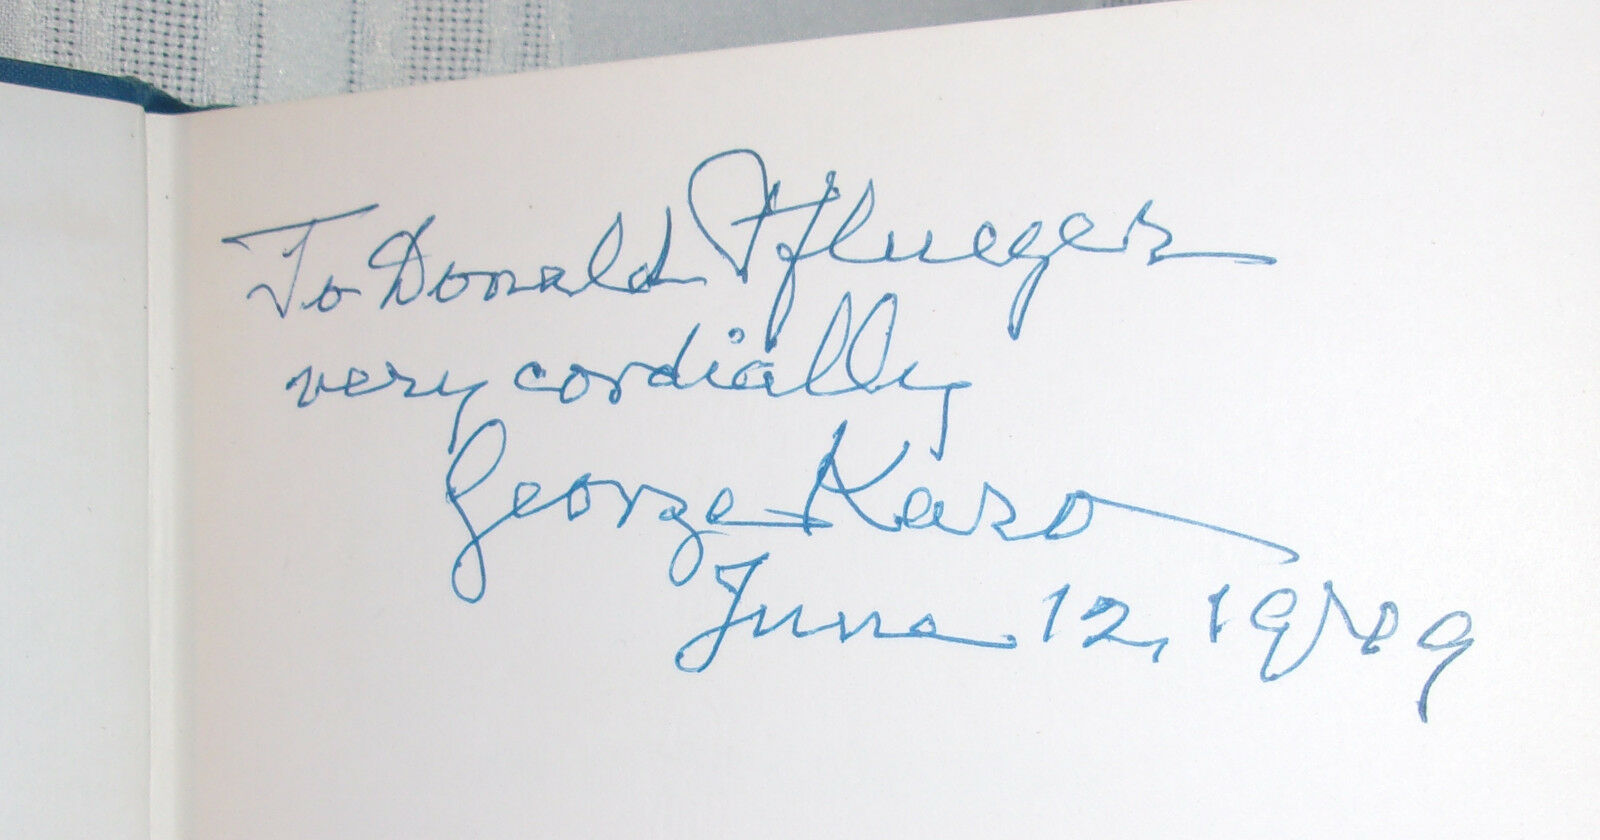 To Donald Pflueger
very cordially
George Karo
June 12, 1989